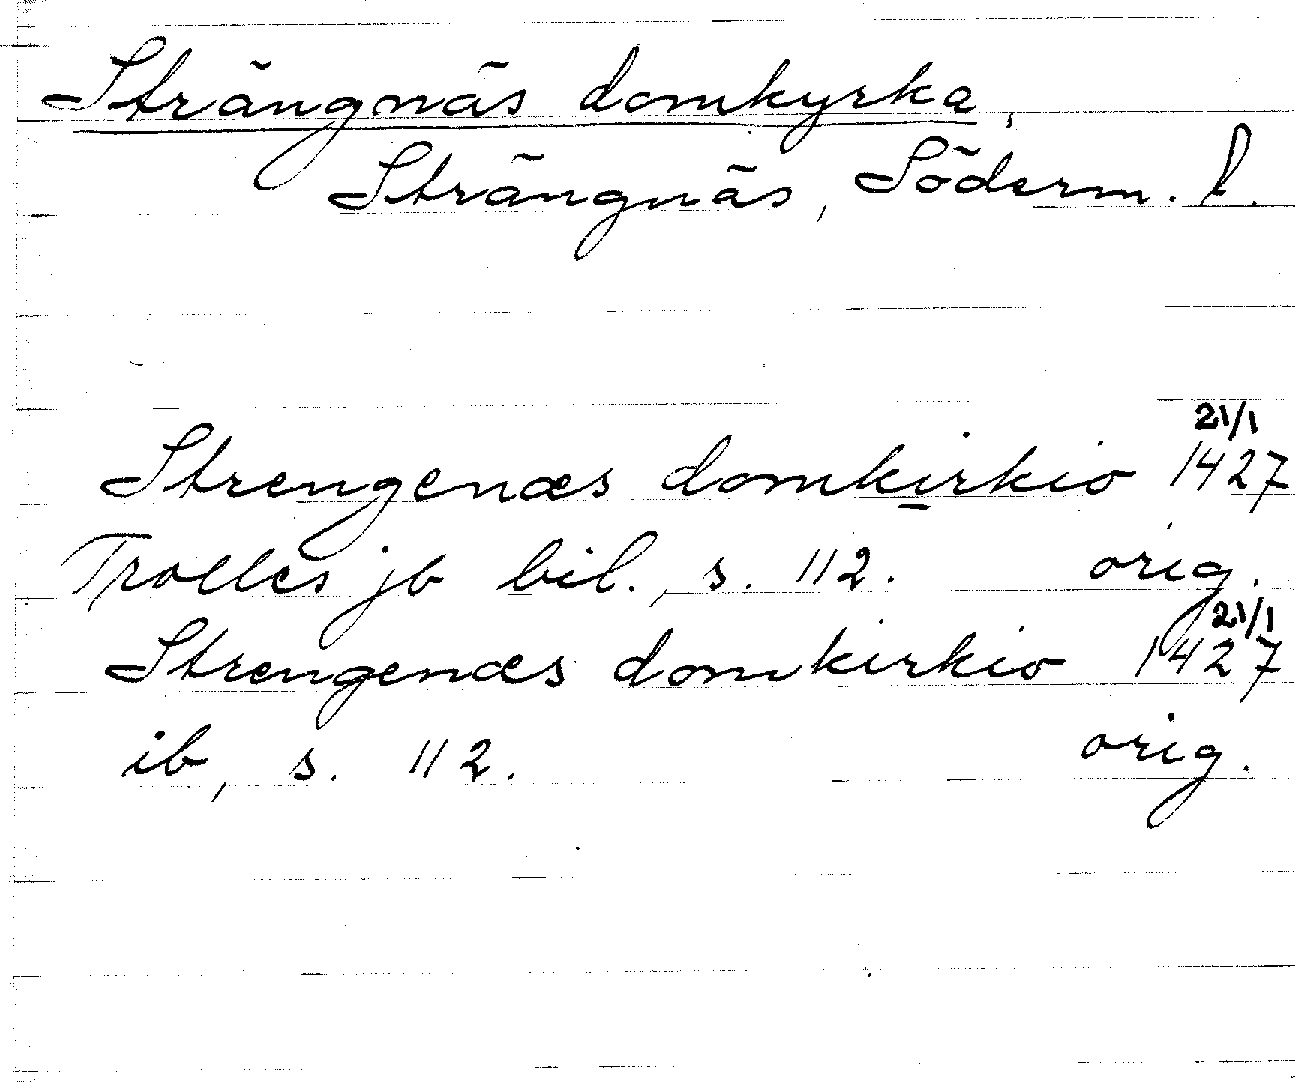 Strängnäs domkyrka,
Strängnäs, Söderm. l.
21/1
Strengenæs domkirkio 1427
Trolles jb bil., s. 112. orig.
21/1
Strengenæs domkirkio 1427
ib, s. 112. orig.